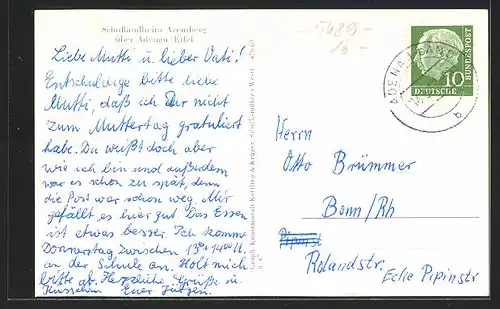 Schullandheim Aremberg
über Adenau/Eifel
Liebe Mutti u. lieber Vati!
Entschuldige bitte liebe
Mutti, daß ich Dir nicht
zum Muttertag gratuliert
habe. Du weißt doch aber
wie ich bin und außerdem
war es schon zu spät, denn
die Post war schon weg. Mir
gefällt es hier gut. Das Essen
ist etwas besser. Ich komme
Donnerstag zwischen 13³⁰ 14⁰⁰ U.
an der Schule an. Holt mich
bitte ab. Herzliche Grüße u.
Küsschen Euer Jürgen.
5489
10
DEUTSCHE
BUNDESPOST
ADENAU
b
Herrn
Otto Brümmer
Bonn/Rh
Pipinst
Rolandstr.
Ecke Pipinstr